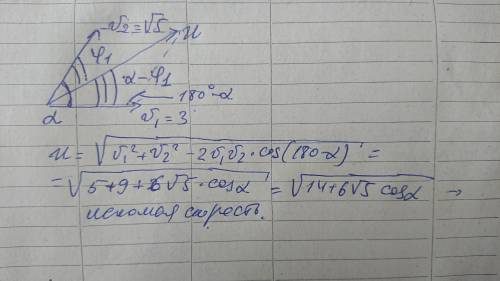 v₂=√5
u
φ₁
α-φ₁
180°-α
α
v₁=3
u = √(v₁²+v₂²-2v₁v₂·cos(180-α)) =
= √(5+9+6√5·cosα) = √(14+6√5 cosα) →
искомая скорость.